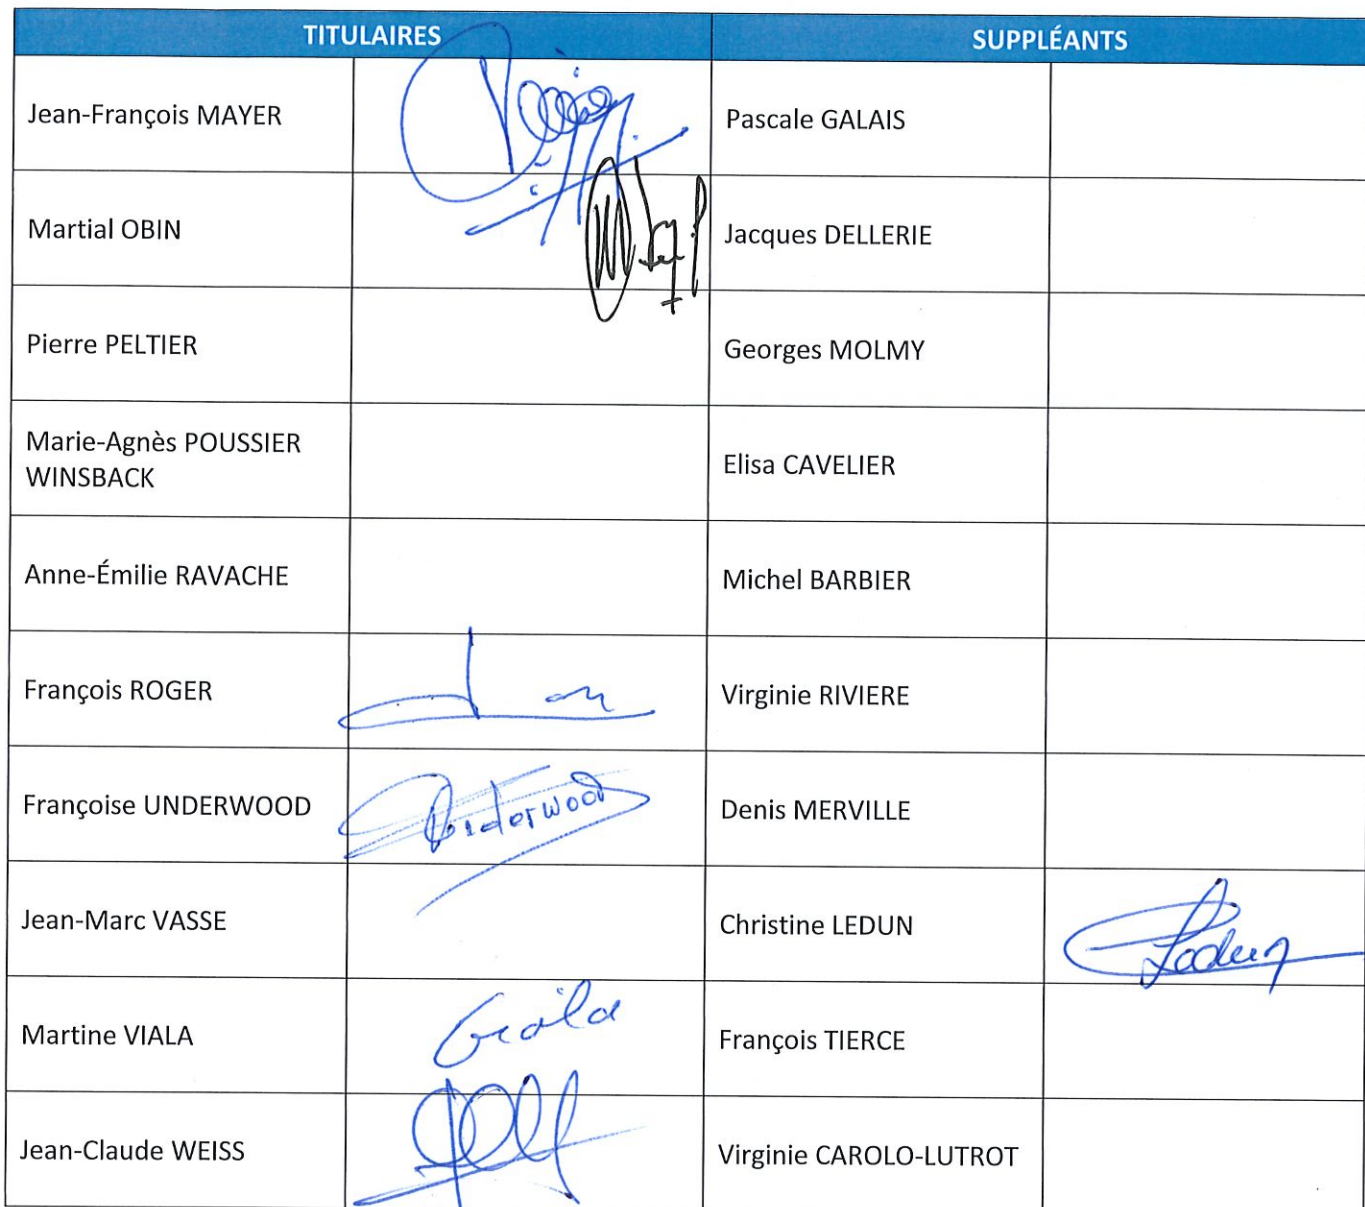 TITULAIRES SUPPLÉANTS
Jean-François MAYER Pascale GALAIS
Martial OBIN Jacques DELLERIE
Pierre PELTIER Georges MOLMY
Marie-Agnès POUSSIER
WINSBACK
Elisa CAVELIER
Anne-Émilie RAVACHE Michel BARBIER
François ROGER Virginie RIVIERE
Françoise UNDERWOOD Underwood Denis MERVILLE
Jean-Marc VASSE Christine LEDUN Ledun
Martine VIALA Viala François TIERCE
Jean-Claude WEISS Virginie CAROLO-LUTROT